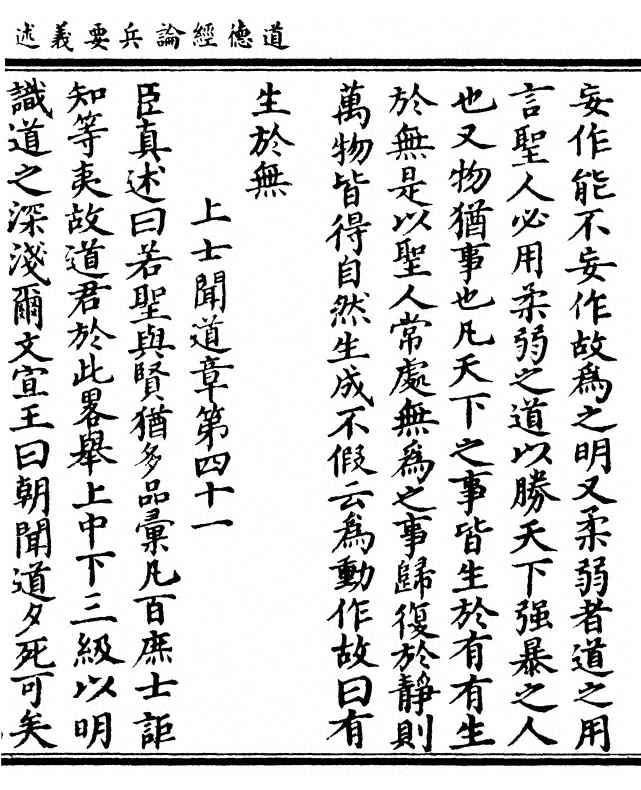 道德經論兵要義述
妄作能不妄作故爲之明又柔弱者道之用
言聖人必用柔弱之道以勝天下强暴之人
也又物猶事也凡天下之事皆生於有有生
於無是以聖人常處無爲之事歸復於靜則
萬物皆得自然生成不假云爲動作故曰有
生於無
上士聞道章第四十一
臣真述曰若聖與賢猶多品彙凡百庶士詎
知等夷故道君於此畧舉上中下三級以明
識道之深淺爾文宣王曰朝聞道夕死可矣